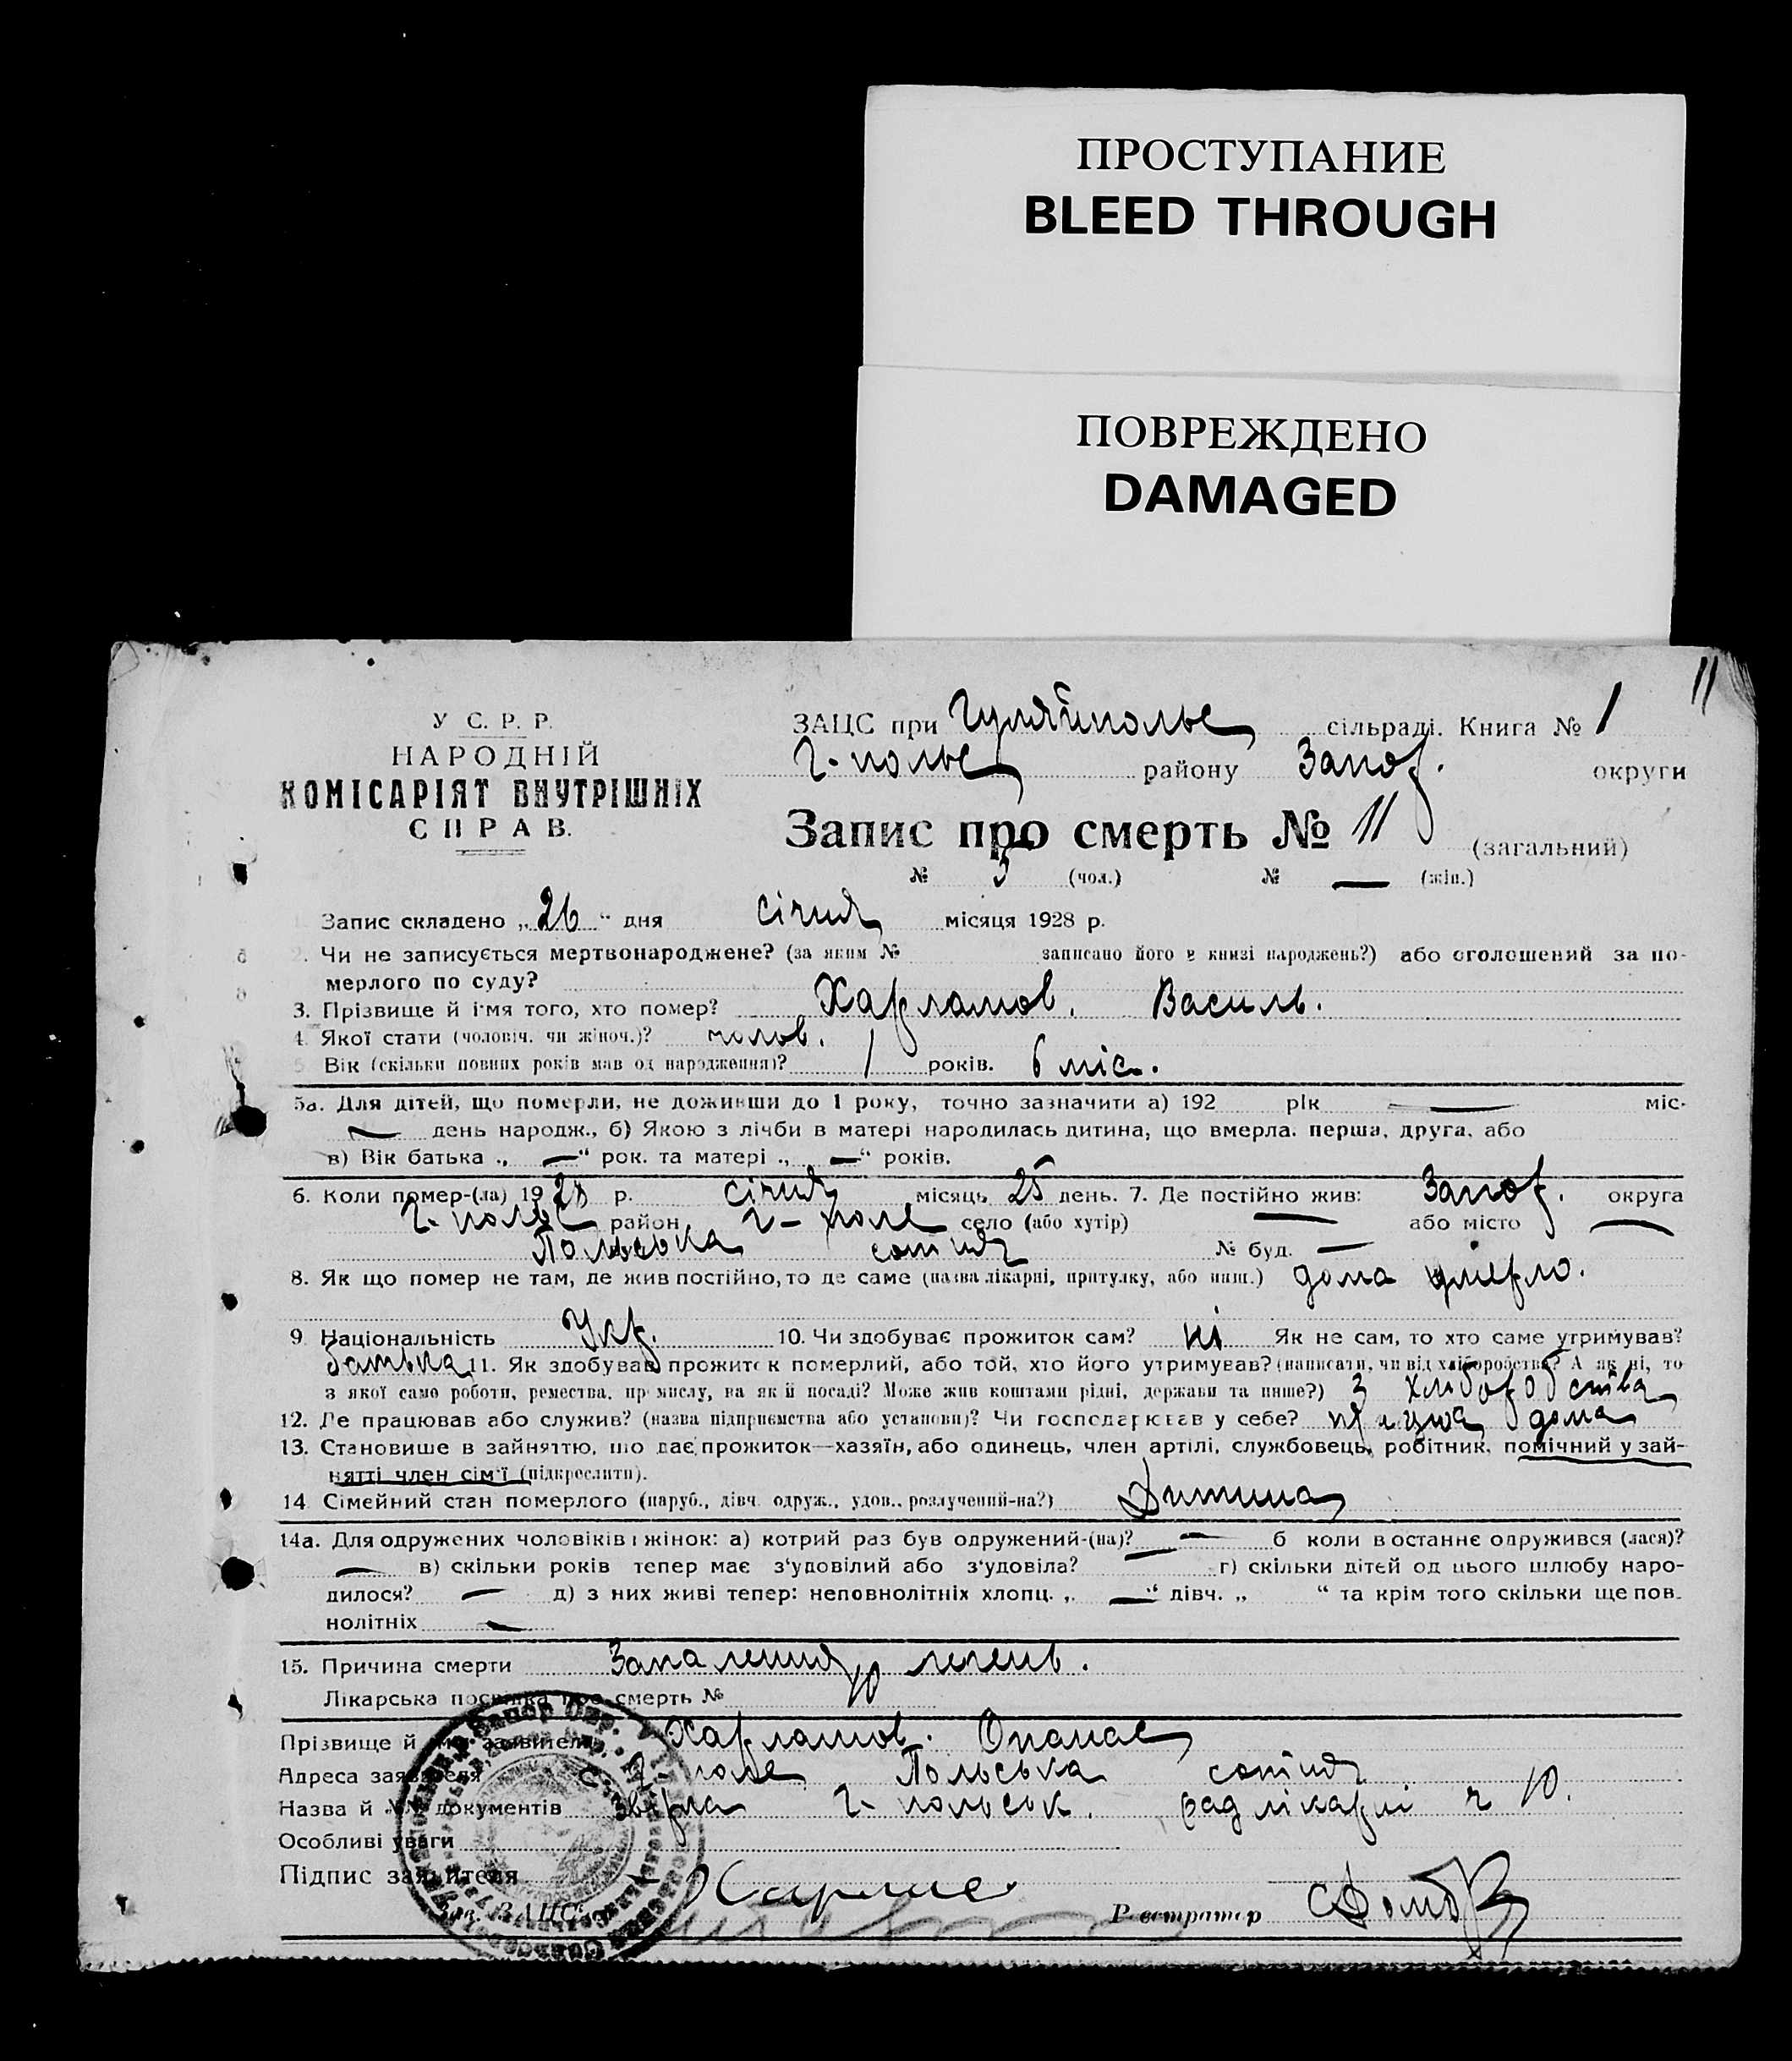 ПРОСТУПАНИЕ
BLEED THROUGH
ПОВРЕЖДЕНО
DAMAGED
11
У С. Р. Р.
НАРОДНІЙ
КОМІСАРІЯТ ВНУТРІШНІХ
СПРАВ.
ЗАЦС при Гуляйполье сільраді. Книга № 1
Г-полье району Запор. округи
Запис про смерть № 11 (загальний)
№ 5 (чол.) № — (жін.)
Запис складено „26“ дня січня місяця 1928 р.
2. Чи не записується мертвонароджене? (за яким № записано його в книзі народжень?) або оголошений за по-
мерлого по суду?
3. Прізвище й імя того, хто помер? Харламов. Василь.
4. Якої стати (чоловіч. чи жіноч.)? чолов.
5. Вік (скільки повних років мав од народження)? 1 років. 6 міс.
5а. Для дітей, що померли, не доживши до 1 року, точно зазначити а) 192 рік — міс.
— день народж., б) Якою з лічби в матері народилась дитина, що вмерла. перша, друга, або
в) Вік батька „ — “ рок. та матері „ — “ років.
6. Коли помер-(ла) 1928 р. січня місяць 25 день. 7. Де постійно жив: Запор. округа
Г-полье район Г-поле село (або хутір) — або місто —
Польська сотня № буд. —
8. Як що помер не там, де жив постійно, то де саме (назва лікарні, притулку, або инш.) дома умерло.
9. Національність Укр. 10. Чи здобуває прожиток сам? ні Як не сам, то хто саме утримував?
батька 11. Як здобував прожиток померлий, або той, хто його утримував? (написати, чи від хліборобства? А як ні, то
з якої само роботи, ремества, промислу, на якій посаді? Може жив коштами рідні, держави та инше?) З хліборобства
12. Де працював або служив? (назва підприємства або установи)? Чи господарював у себе? дома
13. Становише в зайняттю, що дає прожиток—хазяїн, або одинець, член артілі, службовець, робітник, помічний у зай-
нятті член сім'ї (підкреслити).
14. Сімейний стан померлого (паруб., дівч. одруж., удов., розлучений-на?) Дитина
14а. Для одружених чоловіків і жінок: а) котрий раз був одружений-(на)? — б коли в останнє одружився (лася)?
— в) скільки років тепер має з'удовілий або з'удовіла? — г) скільки дітей од цього шлюбу наро-
дилося? — д) з них живі тепер: неповнолітніх хлопц. „ — “ дівч. „ “ та крім того скільки ще пов-
нолітніх —
15. Причина смерти Запалення легень.
Лікарська посвідка про смерть № 10
Прізвище й імя заявителя Харламов. Опанас
Адреса заявителя Г-поле Польська сотня
Назва й №№ документів Г-польськ. рад лікарні ч 10.
Особливі уваги
Підпис заявителя
Зав. ЗАЦС Реєстратор